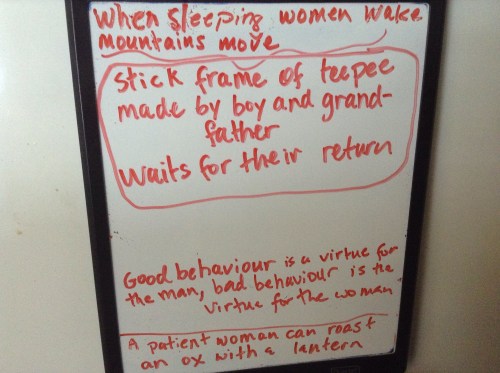 When sleeping women wake
mountains move
stick frame of teepee
made by boy and grand-
father
waits for their return
Good behaviour is a virtue for
the man, bad behaviour is the
virtue for the woman
A patient woman can roast
an ox with a lantern